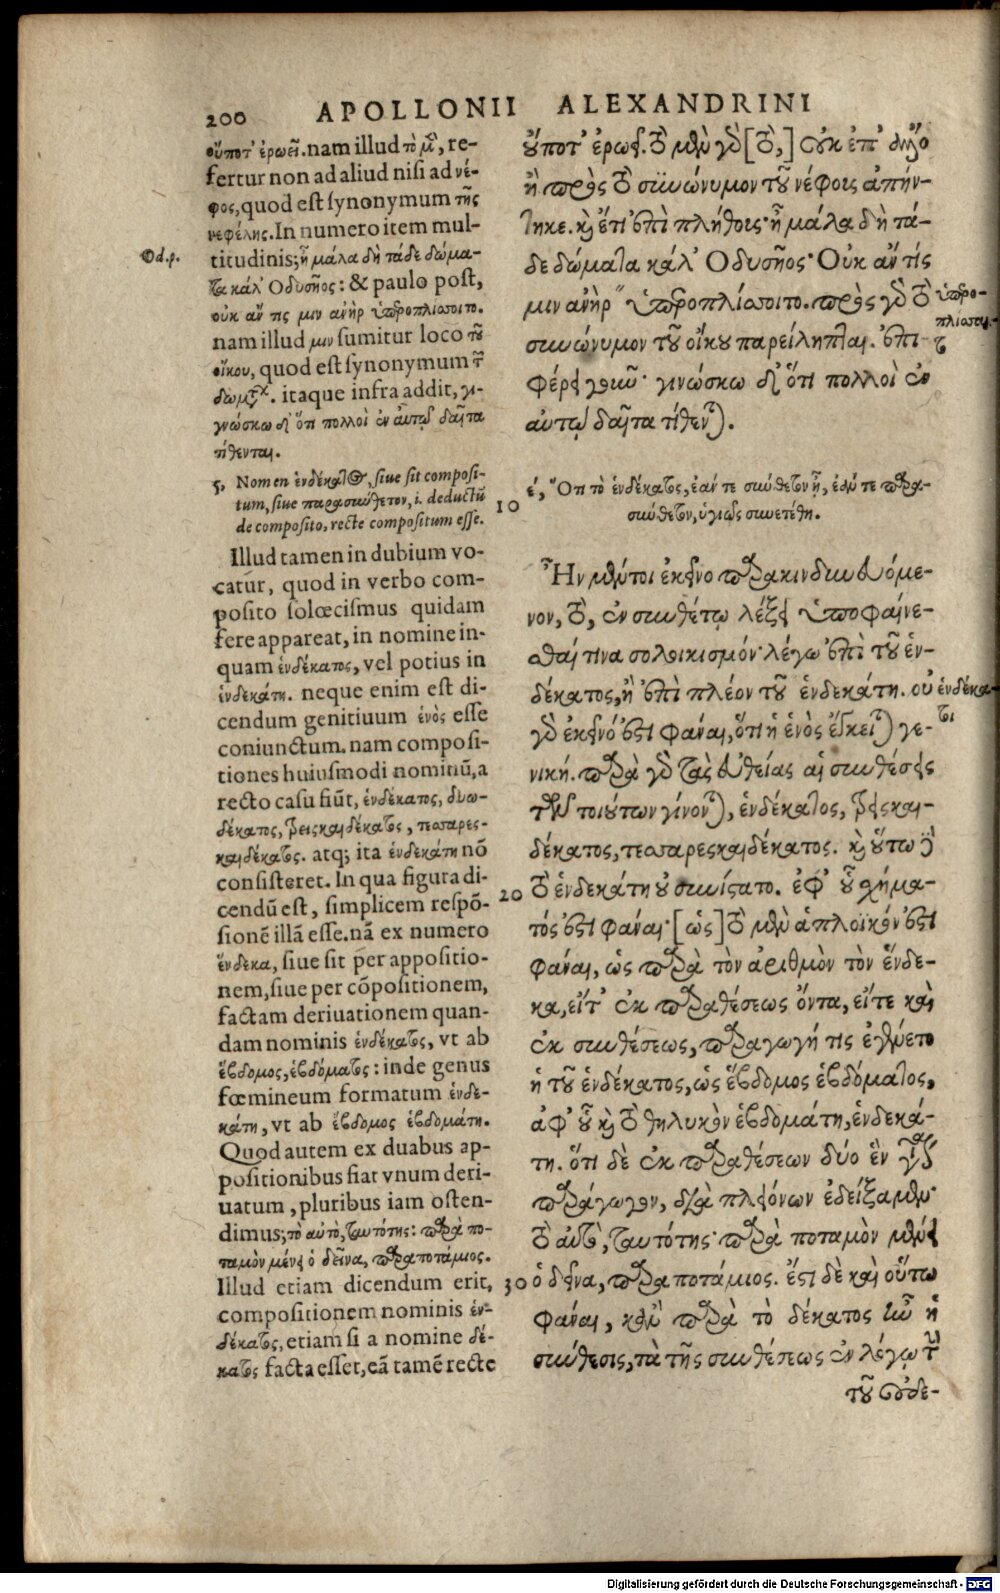 200 APOLLONII ALEXANDRINI
οὔποτ' ἐρωεῖ. nam illud τὸ μὲν, re-
fertur non ad aliud nisi ad νέ-
φος, quod est synonymum τῆς
νεφέλης. In numero item mul-
titudinis; ἦ μάλα δὴ τάδε δώμα-
τα κάλ' Ὀδυσῆος: & paulo post,
οὐκ ἄν τις μιν ἀνὴρ ὑπεροπλίσσοιτο.
nam illud μιν sumitur loco τοῦ
οἴκου, quod est synonymum τοῦ
itaque infra addit, γι-
γνώσκω δ' ὅτι πολλοὶ ἐν αὐτῷ δαῖτα
τίθενται.
5, Nomen ἑνδέκατος, siue sit composi-
tum, siue παρασύνθετον, i. deductū
de composito, recte compositum esse.
Illud tamen in dubium vo-
catur, quod in verbo com-
posito solœcismus quidam
fere appareat, in nomine in-
quam ἑνδέκατος, vel potius in
ἑνδεκάτη. neque enim est di-
cendum genitiuum ἑνὸς esse
coniunctum. nam composi-
tiones huiusmodi nominū, a
recto casu fiūt, ἑνδέκατος, δυω-
δέκατος, τρεισκαιδέκατος, τεσσαρες-
καιδέκατος. atq; ita ἑνδεκάτη nō
consisteret. In qua figura di-
cendū est, simplicem respō-
sionē illā esse. nā ex numero
ἕνδεκα, siue sit per appositio-
nem, siue per cōpositionem,
factam deriuationem quan-
dam nominis ἑνδέκατος, vt ab
ἕβδομος, ἑβδόματος: inde genus
fœmineum formatum ἑνδε-
κάτη, vt ab ἕβδομος ἑβδομάτη.
Quod autem ex duabus ap-
positionibus fiat vnum deri-
uatum, pluribus iam osten-
dimus; τὸ αὐτὸ, ταυτότης: παρὰ πο-
ταμὸν μένει ὁ δεῖνα, παραποτάμιος.
Illud etiam dicendum erit,
compositionem nominis ἑν-
δέκατος, etiam si a nomine δέ-
κατος facta esset, eā tamē recte
Od. ρ.
οὔποτ' ἐρωεῖ. τὸ μὲν γὰρ [τὸ,] οὐκ ἐπ' ἄλλο
ἢ πρὸς τὸ συνώνυμον τοῦ νέφους ἀπήν-
τηκε. καὶ ἔτι ἐπὶ πλήθους· ἦ μάλα δὴ τά-
δε δώματα κάλ' Ὀδυσῆος· Οὐκ ἄν τίς
μιν ἀνὴρ " ὑπεροπλίσσοιτο. πρὸς γὰρ τὸ
συνώνυμον τοῦ οἴκου παρείληπται. ἐπι-
φέρει γοῦν· γινώσκω δ' ὅτι πολλοὶ ἐν
αὐτῷ δαῖτα τίθενται.
ὑπερο-
πλίσσαι-
το
έ, Ὅτι τὸ ἑνδέκατος, ἐάν τε σύνθετον ᾖ, ἐάν τε παρα-
10
σύνθετον, ὑγιῶς συνετέθη.
Ἦν μέντοι ἐκεῖνο παρακινδυνευόμε-
νον, τὸ, ἐν συνθέτῳ λέξει ὑποφαίνε-
σθαί τινα σολοικισμόν· λέγω ἐπὶ τοῦ ἑν-
δέκατος, ἢ ἐπὶ πλέον τοῦ ἑνδεκάτη. οὐ
γὰρ ἐκεῖνό ἐστι φάναι, ὅτι ἡ ἑνὸς ἔγκειται γε-
νική. παρὰ γὰρ τὰς εὐθείας αἱ συνθέσεις
τῶν τοιούτων γίνονται, ἑνδέκατος, τρεισκαι-
δέκατος, τεσσαρεσκαιδέκατος. καὶ οὕτω
20
τὸ ἑνδεκάτη οὐ συνίστατο. ἐφ' οὗ σχήμα-
τός ἐστι φάναι· [ὡς] τὸ μὲν ἁπλοϊκόν ἐστι
φάναι, ὡς παρὰ τὸν ἀριθμὸν τὸν ἕνδε-
κα, εἴτ' ἐκ παραθέσεως ὄντα, εἴτε καὶ
ἐκ συνθέσεως, παραγωγή τις ἐγένετο
ἡ τοῦ ἑνδέκατος, ὡς ἕβδομος ἑβδόματος,
ἀφ' οὗ καὶ τὸ θηλυκὸν ἑβδομάτη, ἑνδεκά-
τη. ὅτι δὲ ἐκ παραθέσεων δύο ἓν
παράγωγον, διὰ πλειόνων ἐδείξαμεν·
τὸ αὐτὸ, ταυτότης· παρὰ ποταμὸν μένει
30
ὁ δεῖνα, παραποτάμιος. ἔστι δὲ καὶ οὕτω
φάναι, κἂν παρὰ τὸ δέκατος ἦν ἡ
σύνθεσις, τὰ τῆς συνθέσεως ἐν λόγῳ
ἑνδεκά-
τῳ
τοῦ οὐδε-
Digitalisierung gefördert durch die Deutsche Forschungsgemeinschaft - DFG